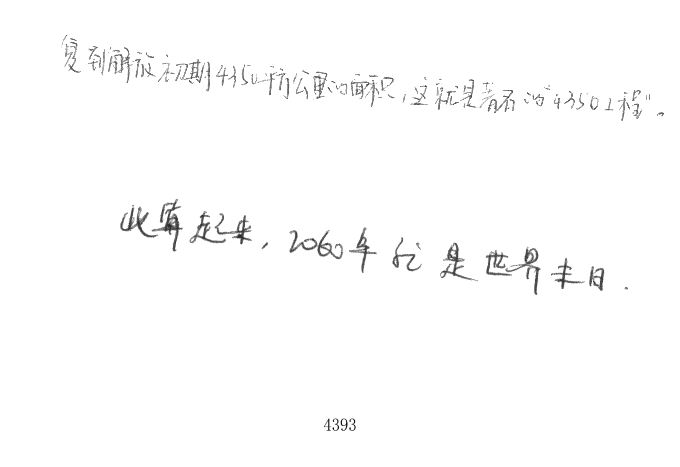 复到解放初期4350平方公里的面积，这就是著名的“4350工程”。
此算起来，2060年才是世界末日．
4393